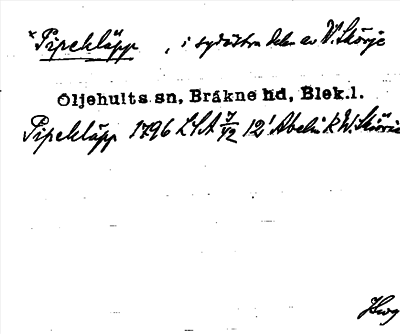 *Pipekläpp, i sydöstra delen av V. Skörje
Öljehults sn, Bräkne hd, Blek.l.
Pipekläpp 1796 LSA 7/V2 12' Abeln V. Skörje
Hwg